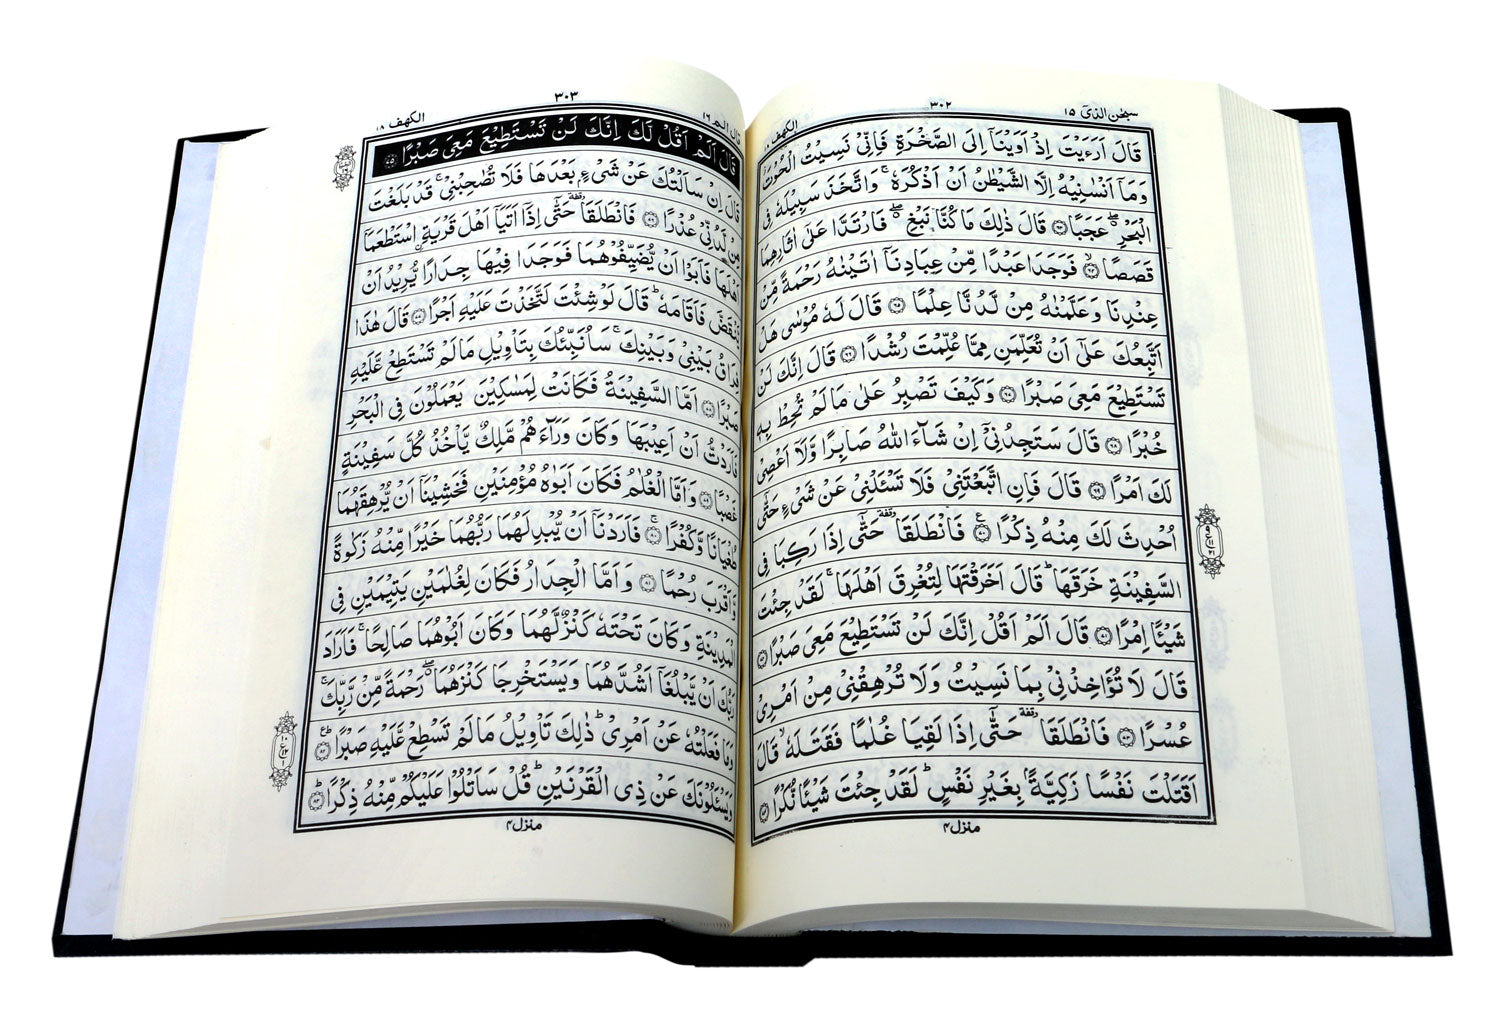 سبحٰن الذیٓ ١٥ ٣٠٢ الكهف ١٨
قَالَ اَرَءَيْتَ اِذْ اَوَيْنَآ اِلَى الصَّخْرَةِ فَاِنِّيْ نَسِيْتُ الْحُوْتَ
وَمَآ اَنْسٰنِيْهُ اِلَّا الشَّيْطٰنُ اَنْ اَذْكُرَهٗ ۚ وَاتَّخَذَ سَبِيْلَهٗ فِى
الْبَحْرِ ۖ عَجَبًا ۝٦٣ قَالَ ذٰلِكَ مَا كُنَّا نَبْغِ ۖ فَارْتَدَّا عَلٰٓى اٰثَارِهِمَا
قَصَصًا ۝٦٤ۙ فَوَجَدَا عَبْدًا مِّنْ عِبَادِنَآ اٰتَيْنٰهُ رَحْمَةً مِّنْ
عِنْدِنَا وَعَلَّمْنٰهُ مِنْ لَّدُنَّا عِلْمًا ۝٦٥ قَالَ لَهٗ مُوْسٰى هَلْ
اَتَّبِعُكَ عَلٰٓى اَنْ تُعَلِّمَنِ مِمَّا عُلِّمْتَ رُشْدًا ۝٦٦ قَالَ اِنَّكَ لَنْ
تَسْتَطِيْعَ مَعِىَ صَبْرًا ۝٦٧ وَكَيْفَ تَصْبِرُ عَلٰى مَا لَمْ تُحِطْ بِهٖ
خُبْرًا ۝٦٨ قَالَ سَتَجِدُنِيْٓ اِنْ شَآءَ اللّٰهُ صَابِرًا وَّلَآ اَعْصِيْ
لَكَ اَمْرًا ۝٦٩ قَالَ فَاِنِ اتَّبَعْتَنِيْ فَلَا تَسْـَٔلْنِيْ عَنْ شَيْءٍ حَتّٰٓى
اُحْدِثَ لَكَ مِنْهُ ذِكْرًا ۝٧٠ۧ فَانْطَلَقَا وقفة حَتّٰٓى اِذَا رَكِبَا فِى
السَّفِيْنَةِ خَرَقَهَا ؕ قَالَ اَخَرَقْتَهَا لِتُغْرِقَ اَهْلَهَا ۚ لَقَدْ جِئْتَ
شَيْـًٔا اِمْرًا ۝٧١ قَالَ اَلَمْ اَقُلْ اِنَّكَ لَنْ تَسْتَطِيْعَ مَعِىَ صَبْرًا ۝٧٢
قَالَ لَا تُؤَاخِذْنِيْ بِمَا نَسِيْتُ وَلَا تُرْهِقْنِيْ مِنْ اَمْرِيْ
عُسْرًا ۝٧٣ فَانْطَلَقَا وقفة حَتّٰٓى اِذَا لَقِيَا غُلٰمًا فَقَتَلَهٗ ۙ قَالَ
اَقَتَلْتَ نَفْسًا زَكِيَّةًۢ بِغَيْرِ نَفْسٍ ؕ لَقَدْ جِئْتَ شَيْـًٔا نُّكْرًا ۝٧٤
منزل ٤
قال الم ١٦ ٣٠٣ الكهف ١٨
قَالَ اَلَمْ اَقُلْ لَّكَ اِنَّكَ لَنْ تَسْتَطِيْعَ مَعِىَ صَبْرًا ۝٧٥
قَالَ اِنْ سَاَلْتُكَ عَنْ شَيْءٍۭ بَعْدَهَا فَلَا تُصٰحِبْنِيْ ۚ قَدْ بَلَغْتَ
مِنْ لَّدُنِّيْ عُذْرًا ۝٧٦ فَانْطَلَقَا وقفة حَتّٰٓى اِذَآ اَتَيَآ اَهْلَ قَرْيَةِ ِۨاسْتَطْعَمَآ
اَهْلَهَا فَاَبَوْا اَنْ يُّضَيِّفُوْهُمَا فَوَجَدَا فِيْهَا جِدَارًا يُّرِيْدُ اَنْ
يَّنْقَضَّ فَاَقَامَهٗ ؕ قَالَ لَوْ شِئْتَ لَتَّخَذْتَ عَلَيْهِ اَجْرًا ۝٧٧ قَالَ هٰذَا
فِرَاقُ بَيْنِيْ وَبَيْنِكَ ۚ سَاُنَبِّئُكَ بِتَاْوِيْلِ مَا لَمْ تَسْتَطِعْ عَّلَيْهِ
صَبْرًا ۝٧٨ اَمَّا السَّفِيْنَةُ فَكَانَتْ لِمَسٰكِيْنَ يَعْمَلُوْنَ فِى الْبَحْرِ
فَاَرَدْتُّ اَنْ اَعِيْبَهَا وَكَانَ وَرَآءَهُمْ مَّلِكٌ يَّاْخُذُ كُلَّ سَفِيْنَةٍ
غَصْبًا ۝٧٩ وَاَمَّا الْغُلٰمُ فَكَانَ اَبَوٰهُ مُؤْمِنَيْنِ فَخَشِيْنَآ اَنْ يُّرْهِقَهُمَا
طُغْيَانًا وَّكُفْرًا ۝٨٠ۚ فَاَرَدْنَآ اَنْ يُّبْدِلَهُمَا رَبُّهُمَا خَيْرًا مِّنْهُ زَكٰوةً
وَّاَقْرَبَ رُحْمًا ۝٨١ وَاَمَّا الْجِدَارُ فَكَانَ لِغُلٰمَيْنِ يَتِيْمَيْنِ فِى
الْمَدِيْنَةِ وَكَانَ تَحْتَهٗ كَنْزٌ لَّهُمَا وَكَانَ اَبُوْهُمَا صَالِحًا ۚ فَاَرَادَ
رَبُّكَ اَنْ يَّبْلُغَآ اَشُدَّهُمَا وَيَسْتَخْرِجَا كَنْزَهُمَا ۖ رَحْمَةً مِّنْ رَّبِّكَ ۚ
وَمَا فَعَلْتُهٗ عَنْ اَمْرِيْ ؕ ذٰلِكَ تَاْوِيْلُ مَا لَمْ تَسْطِعْ عَّلَيْهِ صَبْرًا ۝٨٢ؕۧ
وَيَسْـَٔلُوْنَكَ عَنْ ذِى الْقَرْنَيْنِ ؕ قُلْ سَاَتْلُوْا عَلَيْكُمْ مِّنْهُ ذِكْرًا ۝٨٣ؕ
منزل ٤